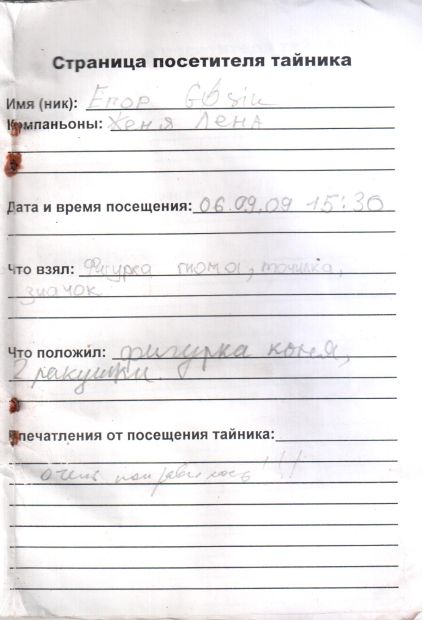 Страница посетителя тайника
Имя (ник): Егор
Компаньоны: Женя Лена
Дата и время посещения: 06.09.09 15:30
Что взял: Фигурка гнома, точилка,
значок
Что положил: фигурка коня,
2 ракушки.
Впечатления от посещения тайника:
очень понравилось !!!